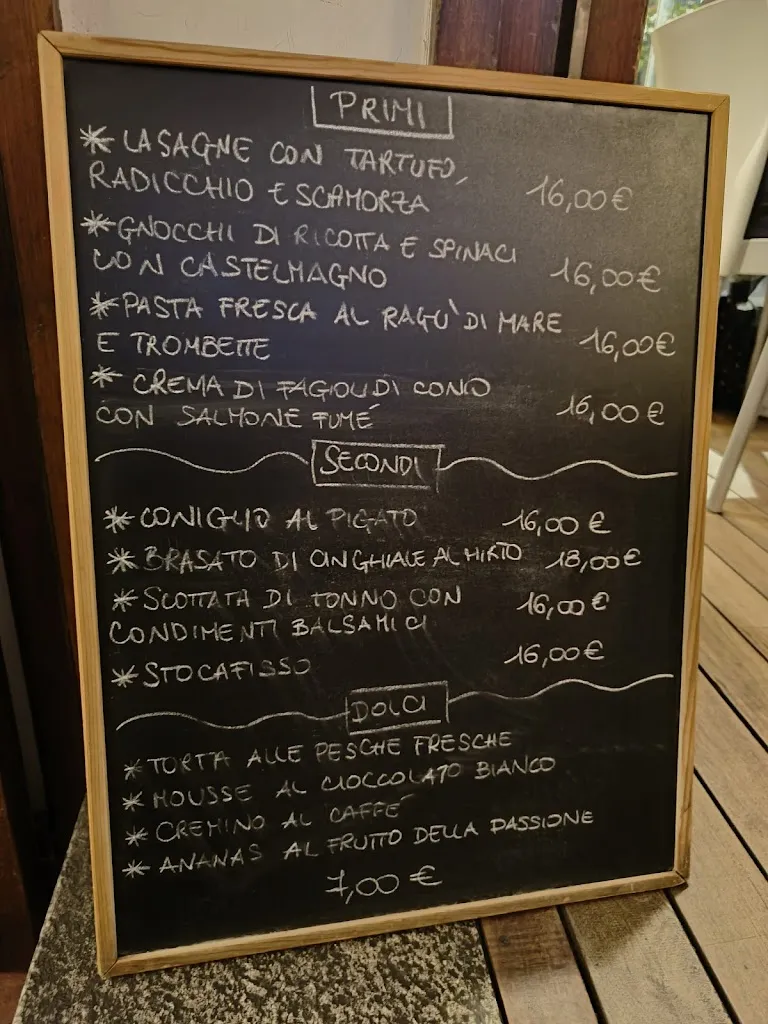 PRIMI
* LASAGNE CON TARTUFO,
RADICCHIO E SCAMORZA 16,00 €
* GNOCCHI DI RICOTTA E SPINACI
CON CASTELMAGNO 16,00 €
* PASTA FRESCA AL RAGU' DI MARE
E TROMBETTE 16,00 €
* CREMA DI FAGIOLI DI CONIO
CON SALMONE FUMÉ 16,00 €
SECONDI
* CONIGLIO AL PIGATO 16,00 €
* BRASATO DI CINGHIALE AL MIRTO 18,00 €
* SCOTTATA DI TONNO CON 16,00 €
CONDIMENTI BALSAMICI
* STOCAFISSO 16,00 €
DOLCI
* TORTA ALLE PESCHE FRESCHE
* MOUSSE AL CIOCCOLATO BIANCO
* CREMINO AL CAFFÉ
* ANANAS AL FRUTTO DELLA PASSIONE
7,00 €